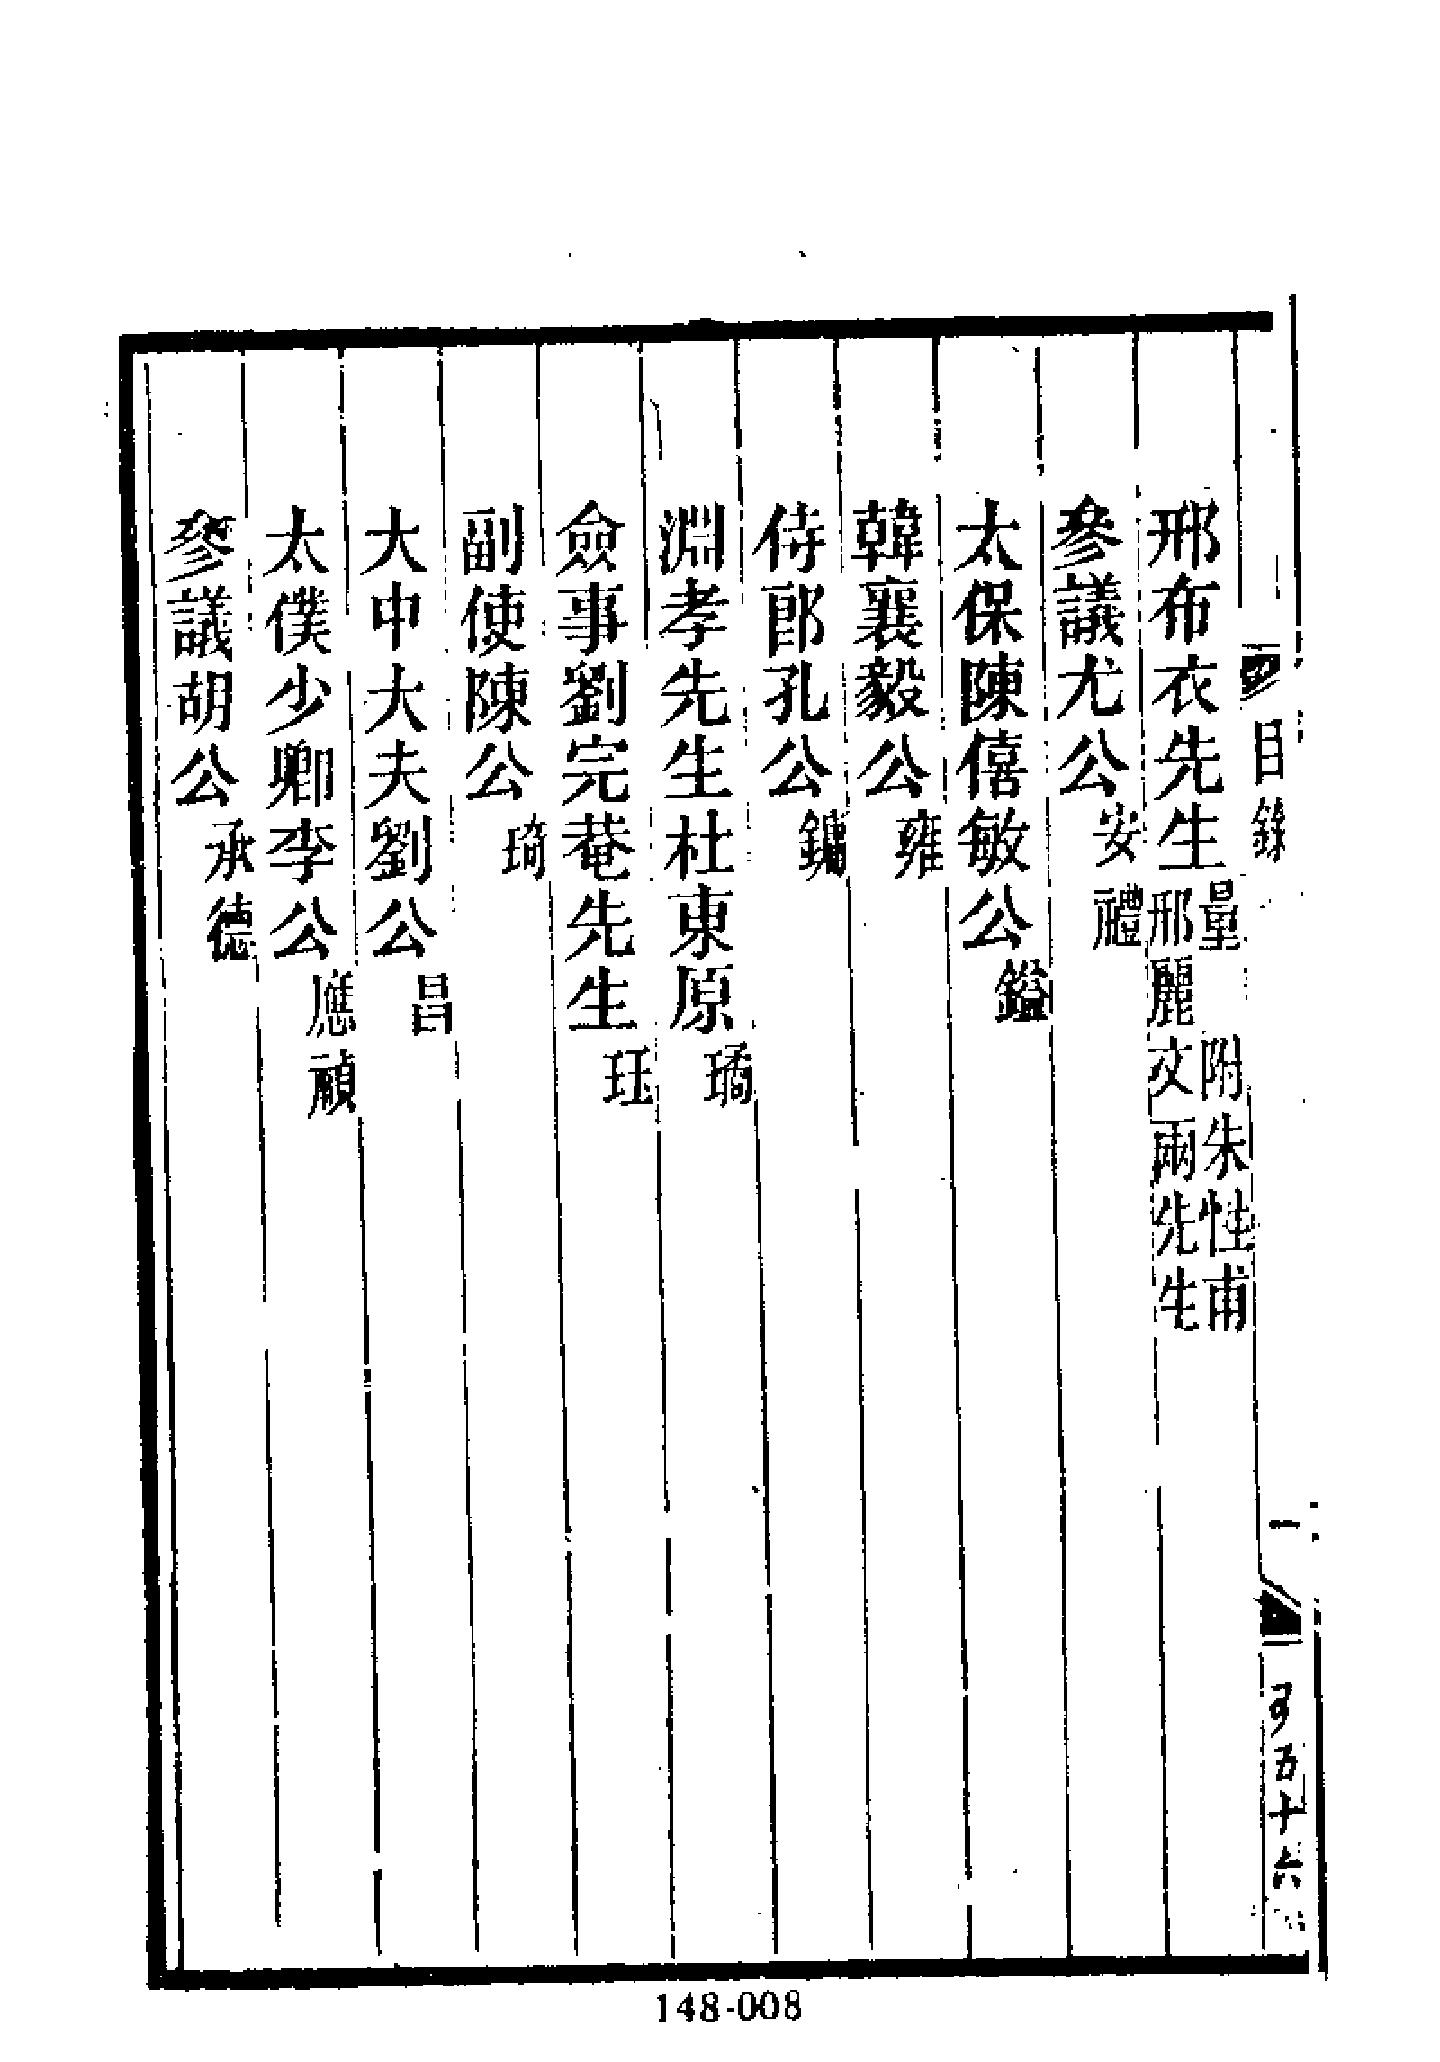 目錄
一
五十六
邢布衣先生量 附朱性甫邢麗文兩先生
參議尤公安禮
太保陳僖敏公鎰
韓襄毅公雍
侍郎孔公鏞
淵孝先生杜東原瓊
僉事劉完菴先生珏
副使陳公琦
大中大夫劉公昌
太僕少卿李公應禎
參議胡公承德
148-008